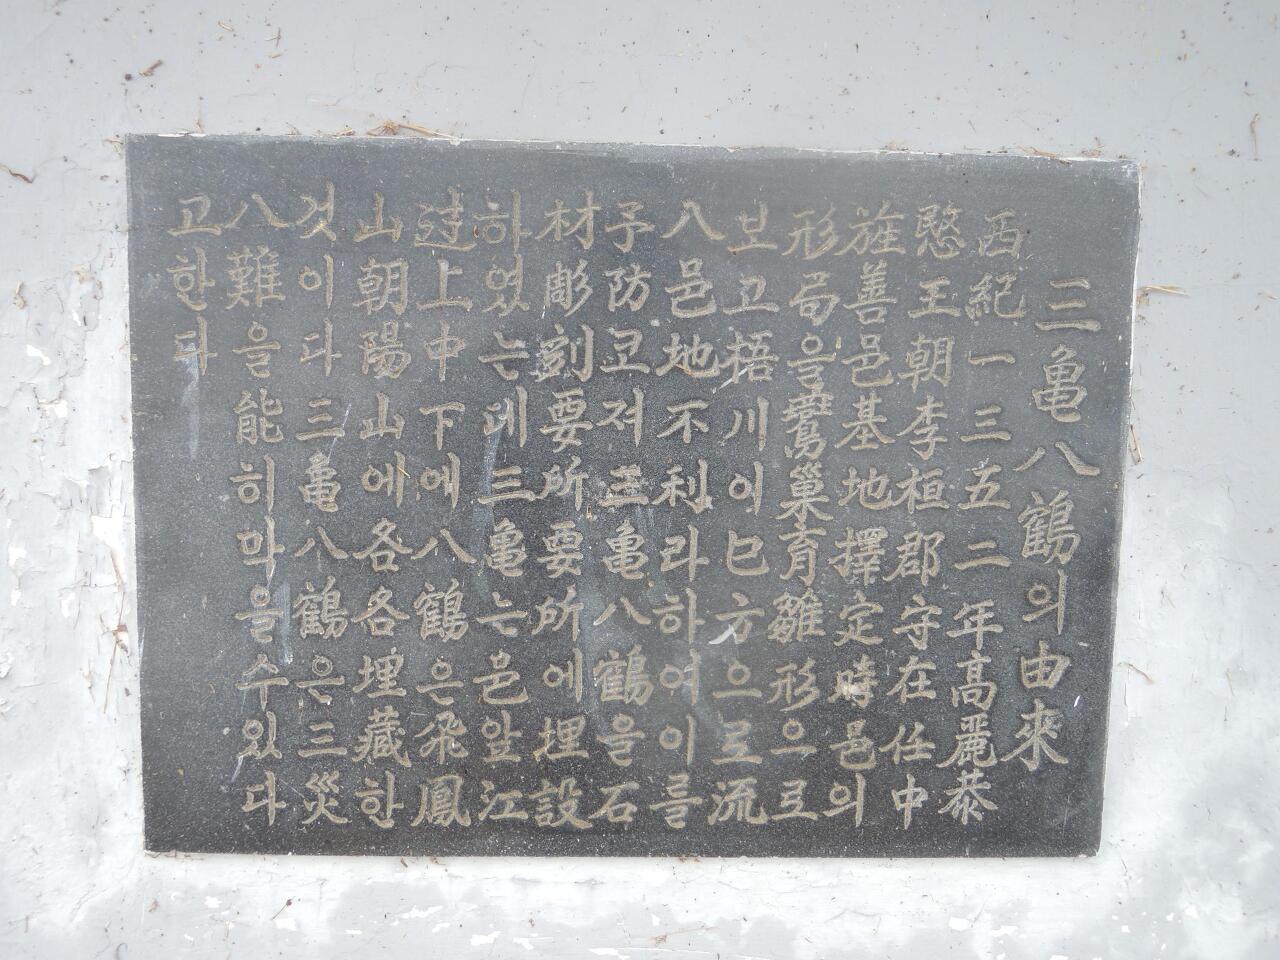 三亀八鶴의由來
西紀一三五二年高麗恭
愍王朝李桓郡守在任中
旌善邑基地擇定時邑의
形局을鶯巢育雛形으로
보고梧川이巳方으로流
八邑地不利라하여이를
予防고저三亀八鶴을石
材彫刻要所要所에埋設
하였는데三亀는邑앞江
边上中下에八鶴은飛鳳
山朝陽山에各各埋藏한
것이다三亀八鶴은三災
八難을能히막을수있다
고한다